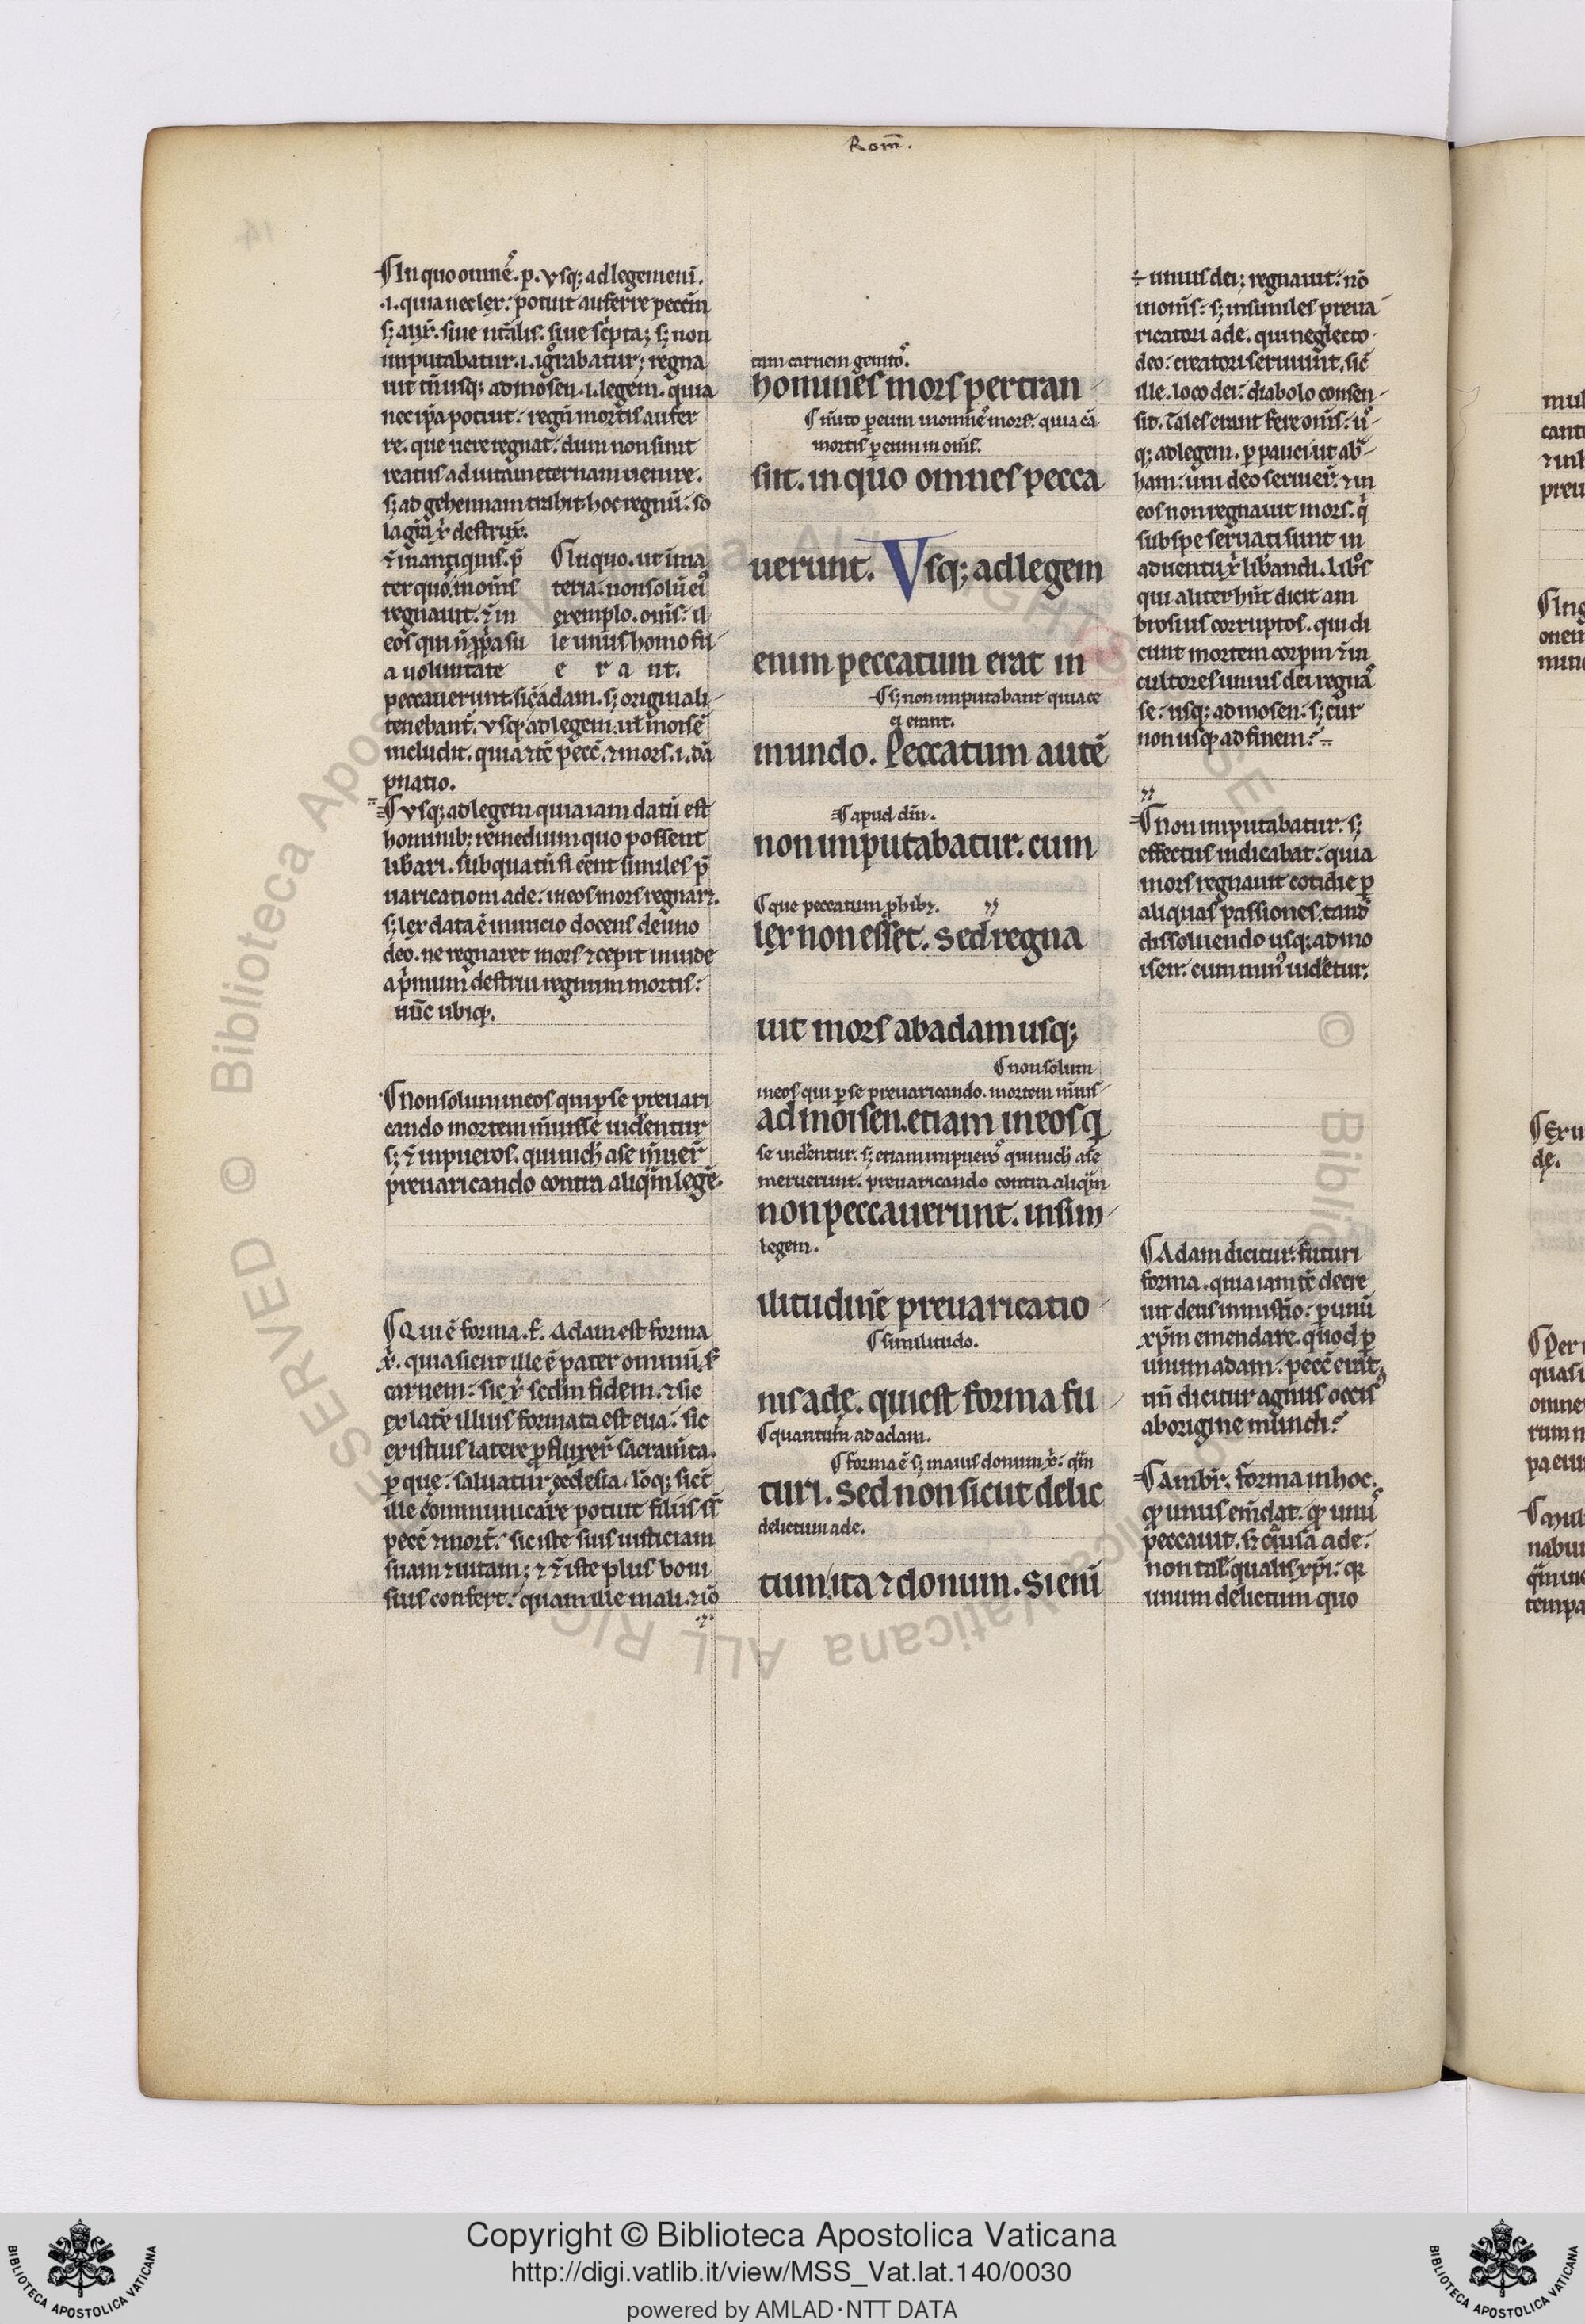 Rom̃.
¶In quo omnẽˢ. p. vsq; ad legem eni̅.
.i. quia nec lex: potuit auferre pecc̃m
s; aux̃. siue nãlis. siue sc̃pta; s; non
imputabatur .i. igˢrabatur; regna
uit tñ usq; ad mosen .i. legem. quia
nec ip̃a potuit: regñ mortis aufer
re. que uere regnat: dum non sinit
reatus ad uitam eternam uenire.
s; ad gehennam trahit hoc regnũ: so
la gr̃a xp̃i destrux̃.
¶In quo. ut in ma
teria. non solũ eiˢ
exemplo. om̃s: il
le unus homo fu
e r a nt.
regnauit.
a uoluntate
peccauerunt. sic adam. s; originali
tenebant̃. vsq; ad legem. ut moisẽ
includit. quia tc̃ pecc̃. ⁊ mors .i. dã
pnatio.
¶vsq; ad legem quia iam datũ est
hominib; remedium quo possent
lib̃ari. sub qua tñ si eẽnt similes p̃
uaricationi ade: in eos mors regnar.
s; lex data ẽ inuicio docens de uno
deo. ne regnaret mors ⁊ cepit in iude
a p̃mum destrui regnum mortis:
nũc ubiq;.
¶Non solum in eos qui p se preuari
cando mortem m̃uisse uidentur
s; ⁊ in pueros. qui nich̃ a se m̃uer̃
preuaricando contra aliq̃m legẽ.
¶Qui ẽ forma. f̃. Adam est forma
x̃. quia sicut ille ẽ pater omniũ s̃
carnem: sic x̃ sec̃dm fidem. ⁊ sic
ex laẽ illius formata est eua: sic
ex istius latere p̃fluxer̃ sacram̃ta.
p que: saluatur ecclesia. loq; sic̃
ille communicare potuit filiis s̃
pecc̃ ⁊ mort̃: sic iste suis iusticiam
suam ⁊ uitam; ⁊ iste plus boni
suis confert: quam ille mali.
tam carnem genitoˢ.
homines mors pertran
¶m̃ito p eum in omnẽˢ mors. quia cã
mortis p eum in om̃s.
siit. in quo omnes pecca
uerunt. Vsq; ad legem
enim peccatum erat in
¶s; non imputabant quia ce
ci erant.
mundo. Peccatum autẽ
¶apud dm̃.
non imputabatur. cum
¶que peccatum p̃hib;.
lex non esset. Sed regna
uit mors ab adam usq;
¶non solum
in eos qui p se preuaricando. mortem m̃uis
ad moisen. etiam in eos q̃
se uidentur. s; etiam in pueroˢ qui nich̃ a se
meruerunt. preuaricando contra aliq̃m
non peccauerunt. in sim
legem.
ilitudinẽ preuaricatio
¶similitudo.
nis ade. qui est forma fu
¶quantum ad adam.
¶forma ẽ s; maius donum x̃. q̃m
turi. Sed non sicut delic
delictum ade.
tum ita ⁊ donum. Si eni̅
÷ unius dei; regnauit: nõ
in om̃s: s; in similes preua
ricatori ade. qui neglecto
deo: creatori seruiunt, sic̃
ille. loco dei: diabolo consen
sit. Tales erant fere om̃s: uˢ
q; ad legem. p̃ pauci ut ab̃
ham: uni deo seruier̃. ⁊ in
eos non regnauit mors. q̃
sub spe seruati sunt in
aduentu x̃ lib̃andi. Lib̃os
qui aliter hñt dicit am
brosius corruptos. qui di
cunt mortem corp̃m ⁊ in
cultores unius dei regnaˢ
se: usq; ad mosen: s; cur
non usq; ad finem?
¶Non imputabatur. s;
effectus indicabat: quia
mors regnauit cotidie p
aliquas passiones. tand̃
dissoluendo usq; ad mo
isen: cum minˢ uidetur.
¶Adam dicitur: futuri
forma. quia iam tc̃ decre
uit deus in misterio: p unũ
xp̃m emendare. quod p
unum adam: pecc̃ erat
uñ dicitur agnus occis
ab origine mundi?
¶Ambr̃. forma in hoc.
q̃ unus em̃dat. q̃ unuˢ
peccauit. s; ade:
non tal̃ qualis xp̃i: q;
unum delictum quo
Copyright © Biblioteca Apostolica Vaticana
http://digi.vatlib.it/view/MSS_Vat.lat.140/0030
powered by AMLAD·NTT DATA
BIBLIOTECA APOSTOLICA VATICANA
BIBLIOTECA APOSTOLICA VATICANA